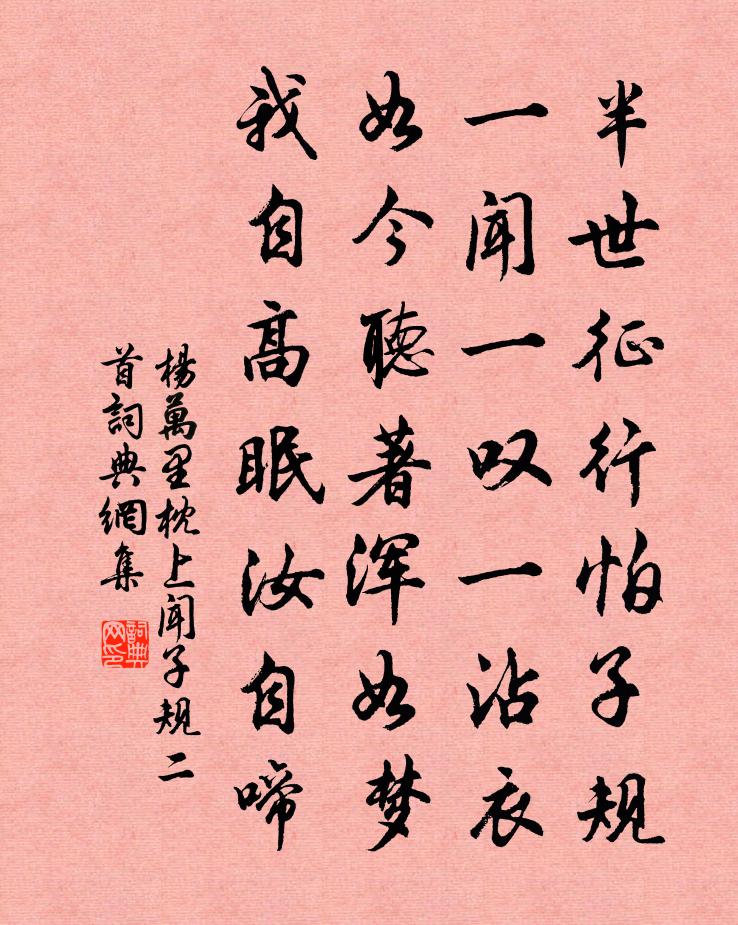 半世征行怕子规
一闻一叹一沾衣
如今聽著浑如梦
我自高眠汝自啼
楊萬里枕上闻子规二
首詞典網集
詞典
网印